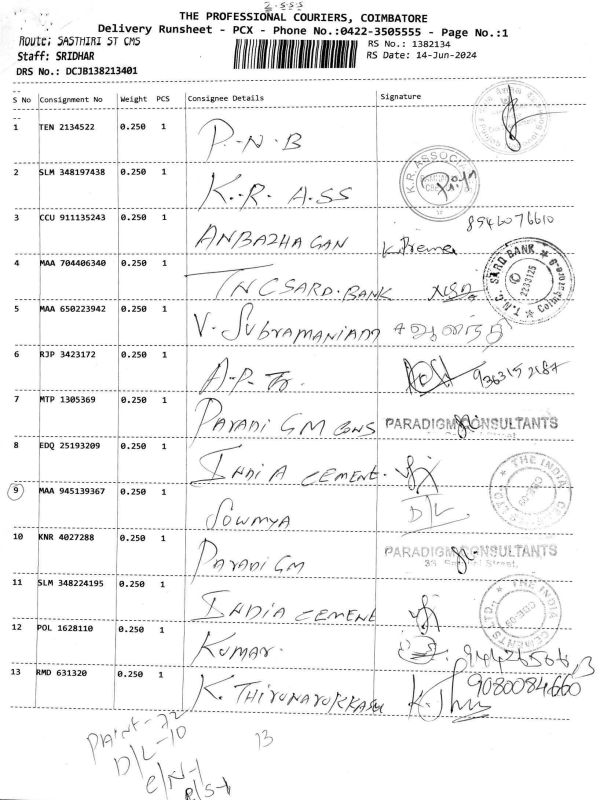 2.555
THE PROFESSIONAL COURIERS, COIMBATORE
Delivery Runsheet - PCX - Phone No.:0422-3505555 - Page No.:1
Route: SASTHIRI ST CMS
RS No.: 1382134
Staff: SRIDHAR
RS Date: 14-Jun-2024
DRS No.: DCJB138213401
S No Consignment No Weight PCS Consignee Details Signature
1 TEN 2134522 0.250 1 P.N.B
2 SLM 348197438 0.250 1 K.R. A.SS
K.R. ASSOCIA
3 CCU 911135243 0.250 1 ANBAZHAGAN K. Prema 8946076610
4 MAA 704406340 0.250 1 TNCSARD.BANK
T.N.C. SARD BANK ★ Coimb
2233125
5 MAA 650223942 0.250 1 V. Subramaniam
6 RJP 3423172 0.250 1 A.P. Tr.
7 MTP 1305369 0.250 1 Paradi GM cons PARADIGM CONSULTANTS
8 EDQ 25193209 0.250 1 India cement.
★ THE INDIA CEMENTS LTD.
9 MAA 945139367 0.250 1 Sowmya D/L
10 KNR 4027288 0.250 1 Paradi GM PARADIGM CONSULTANTS
Street,
11 SLM 348224195 0.250 1 India cement
★ THE INDIA CEMENTS LTD.,
12 POL 1628110 0.250 1 Kumar.
13 RMD 631320 0.250 1 K. Thirunavukkarasu K. Thiru 9080084660
Paint-72
D/L-10
C/N-1
R/S-1
13